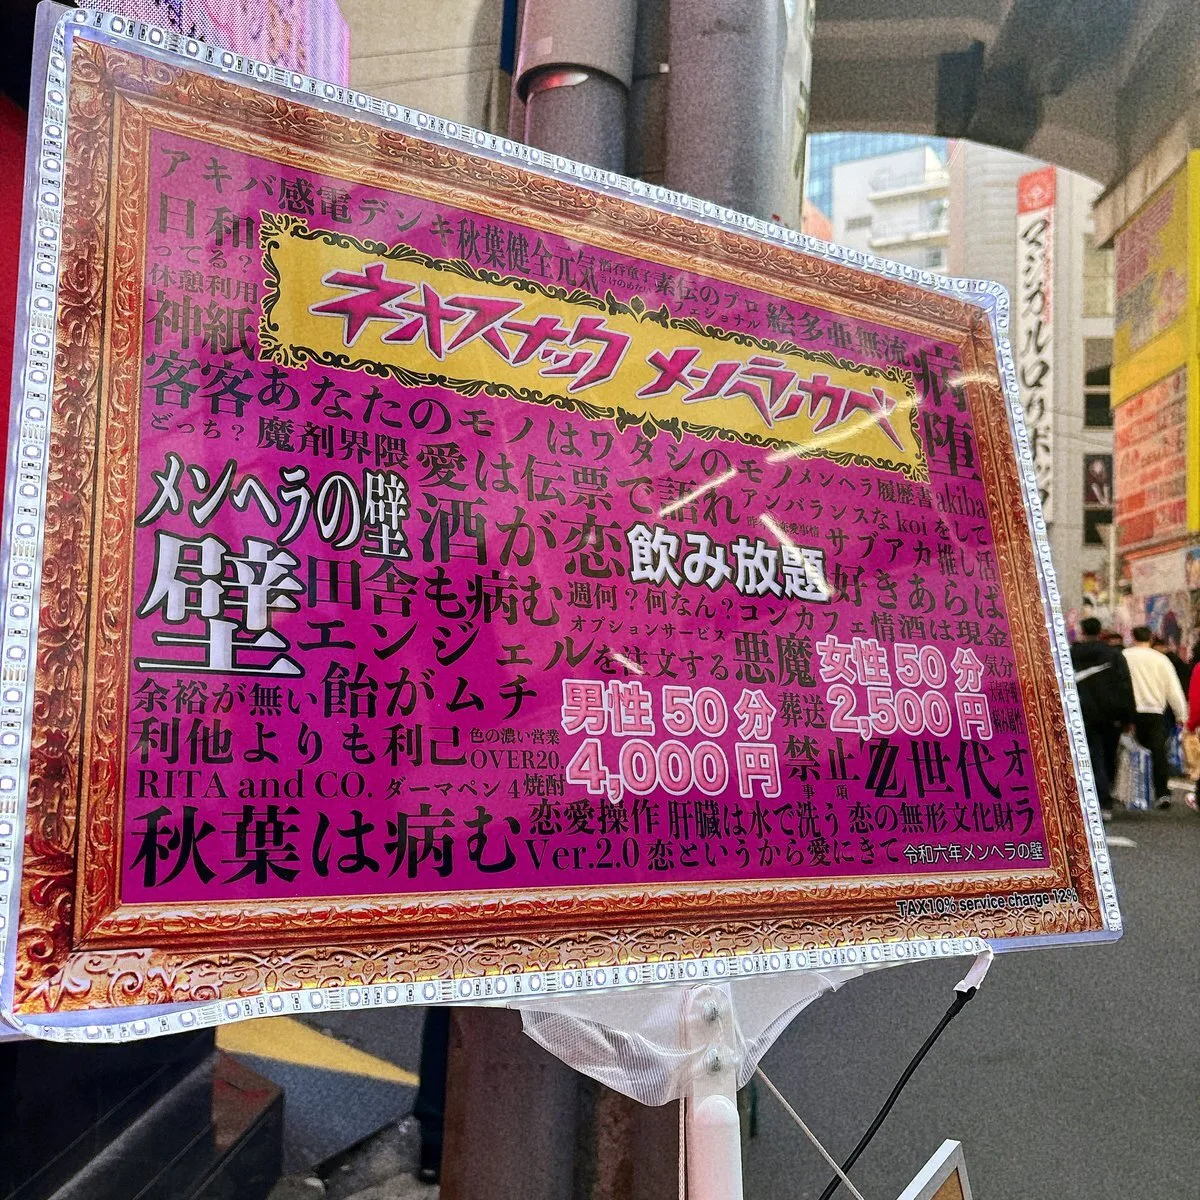 アキバ感電デンキ秋葉健全元気
酒呑童子
素伝のプロ
フェショナル
絵多亜無流
日和
ってる？
休憩利用
神紙
ネオスナック メンヘラノカベ
病
堕
客客あなたのモノはワタシのモノメンヘラ履歴書akiba
どっち？
魔剤界隈
愛は伝票で語れ
アンバランスなkoiをして
メンヘラの壁
酒が恋
飲み放題
サブアカ推し活
壁
田舎も病む
週何？何なん？コンカフェ情酒は現金
好きあらば
エンジェル
オプションサービス
を注文する
悪魔
女性50分
2,500円
気分
余裕が無い
飴がムチ
男性50分
4,000円
葬送
利他よりも利己
色の濃い営業
OVER20,
禁止
事項
Z世代オラ
RITA and CO.
ダーマペン4
焼酎
秋葉は病む
恋愛操作
肝臓は水で洗う
恋の無形文化財
Ver.2.0
恋というから愛にきて
令和六年メンヘラの壁
TAX10% service charge 12%
マジカルロリポップ